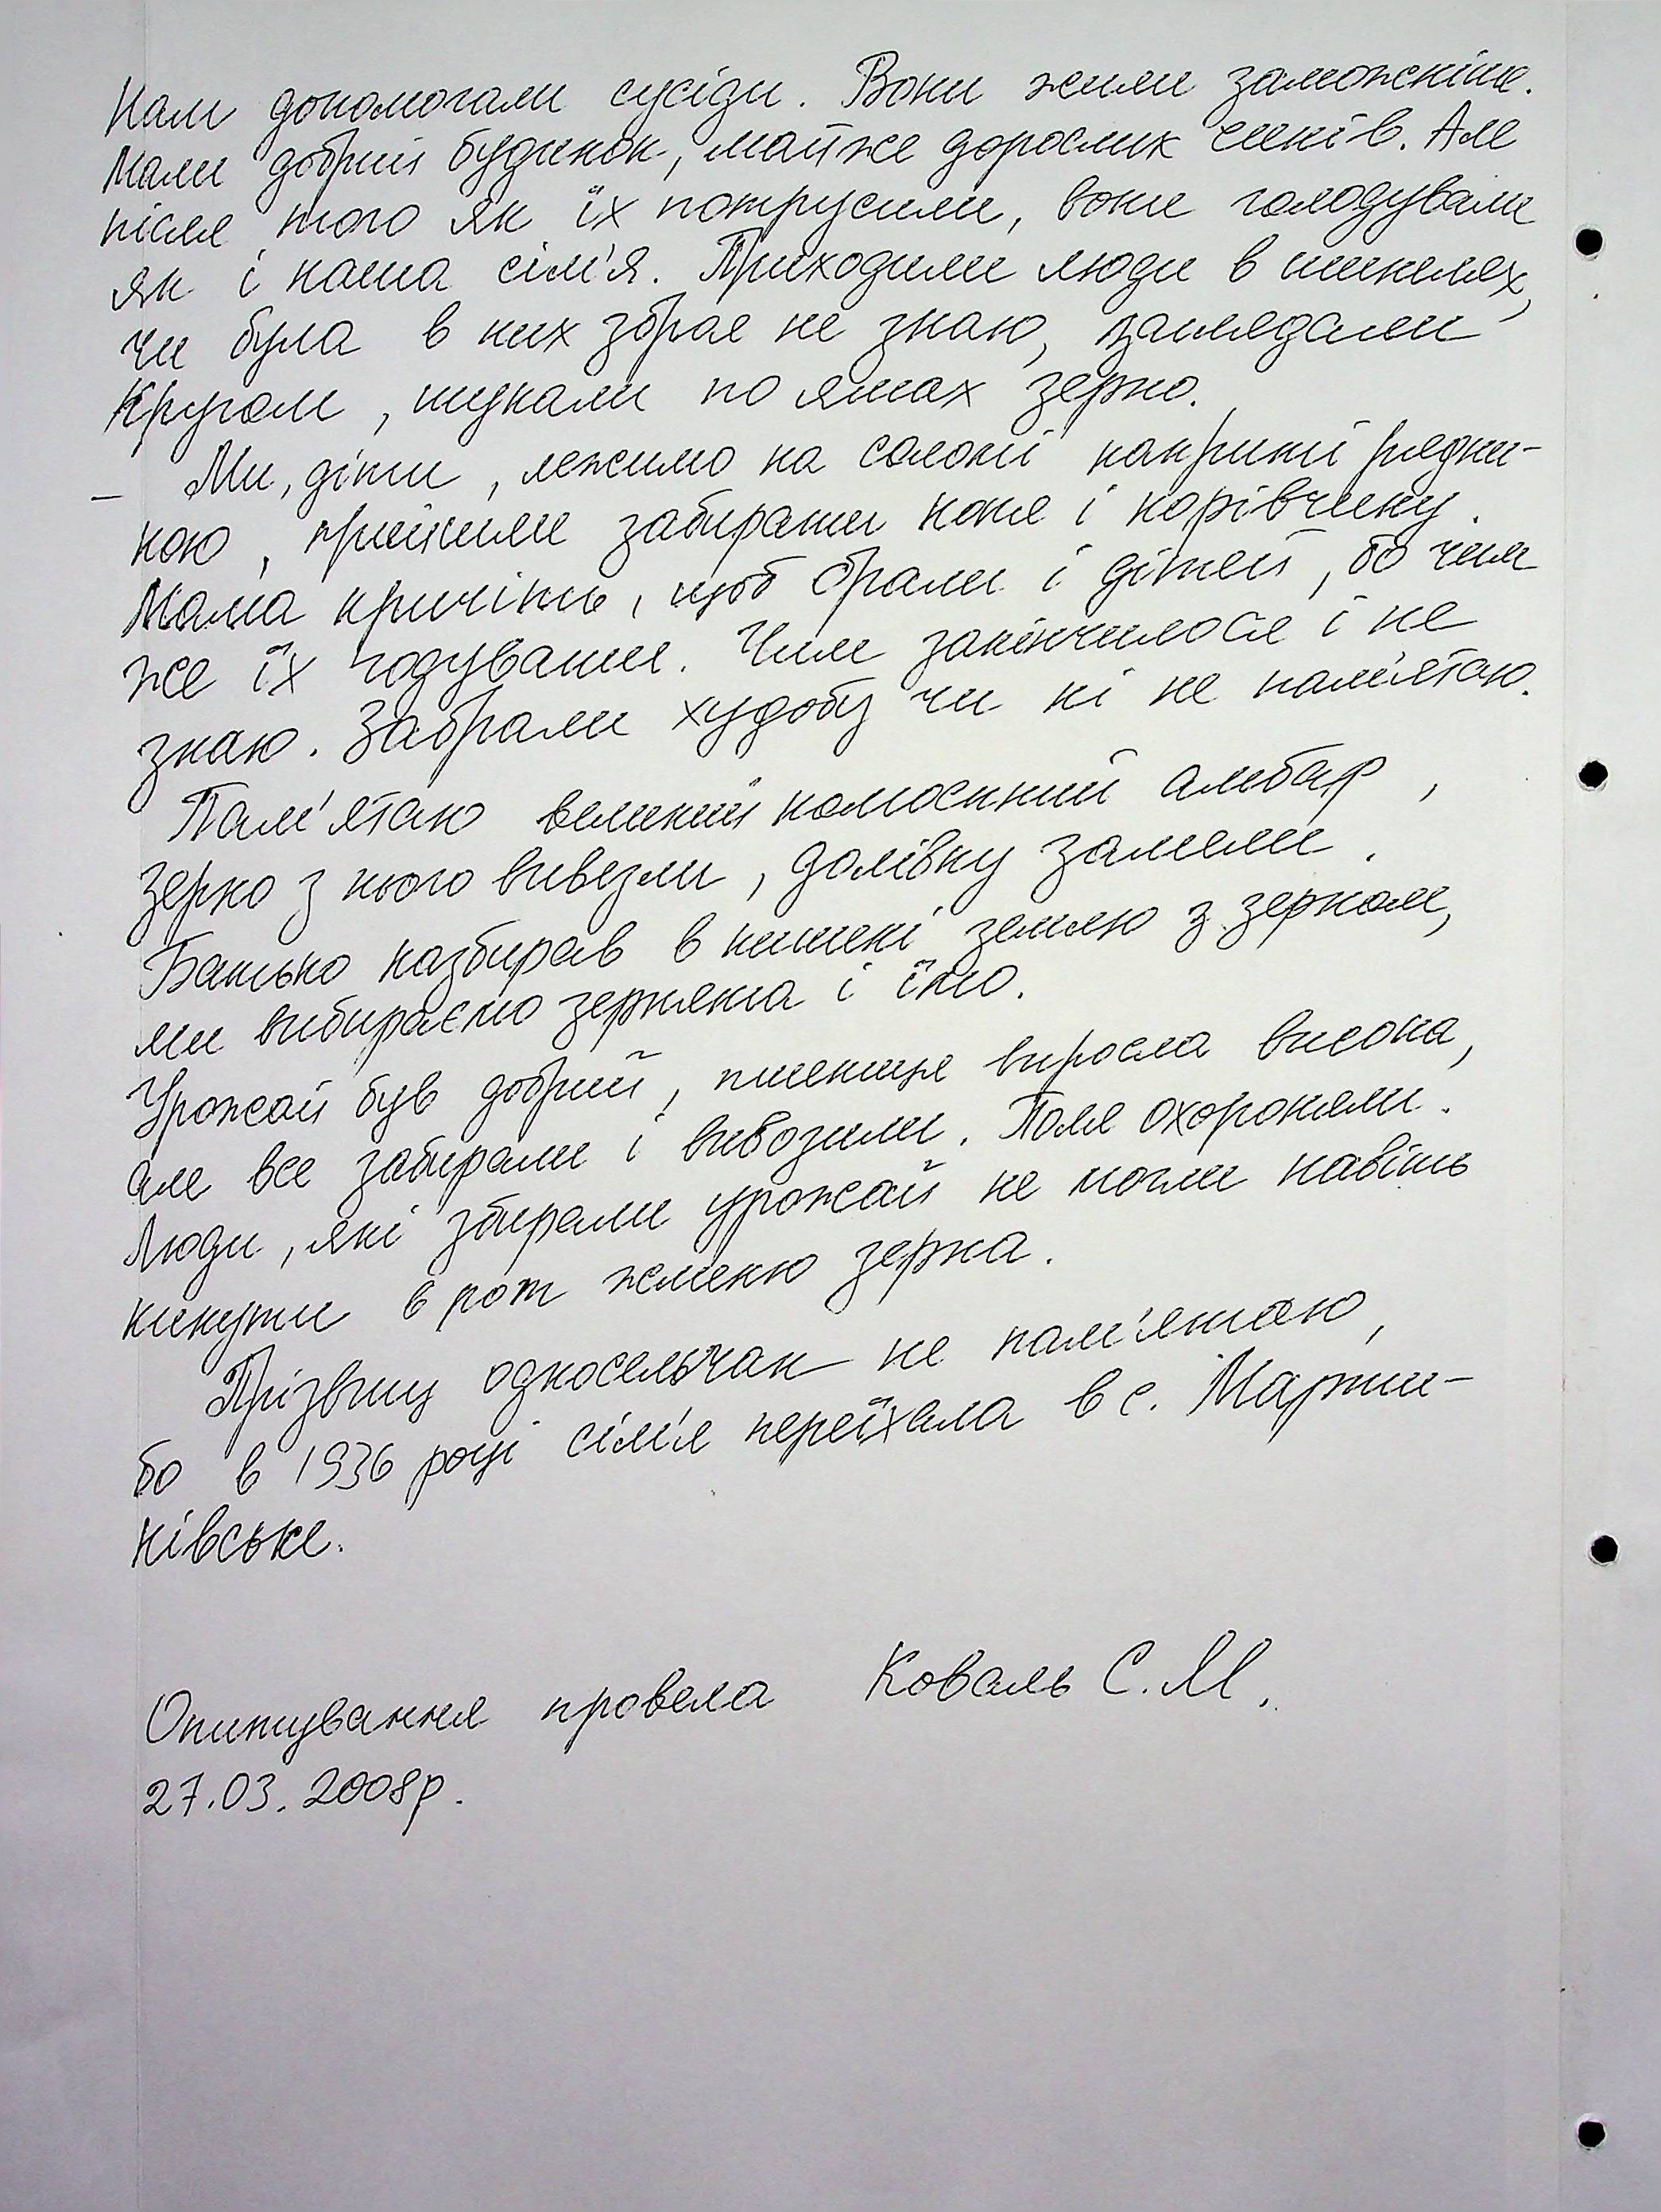 Нам допомогали сусіди. Вони жили заможніше.
Мали добрий будинок, майже дорослих синів. Але
після того як їх потрусили, вони голодували
як і наша сім'я. Приходили люди в шинелях,
чи була в них зброя не знаю, заглядали
кругом, шукали по ямах зерно.
– Ми, діти, лежимо на соломі накриті рядни-
ною, прийшли забирати коня і корівчину.
Мама кричить, щоб брали і дітей, бо чим
же їх годувати. Чим закінчилося і не
знаю. Забрали худобу чи ні не пам'ятаю.
Пам'ятаю великий колоскний амбар,
зерно з нього вивезли, долівку замели.
Батько назбирав в кишені землю з зерном,
ми вибираємо зернята і їмо.
Урожай був добрий, пшениця виросла висока,
але все забирали і вивозили. Поля охороняли.
Люди, які збирали урожай не могли навіть
кинути в рот жменю зерна.
Прізвищ односельчан не пам'ятаю,
бо в 1936 році сім'я переїхала в с. Марти-
нівське.
Опитування провела Коваль С.М.
27.03.2008р.